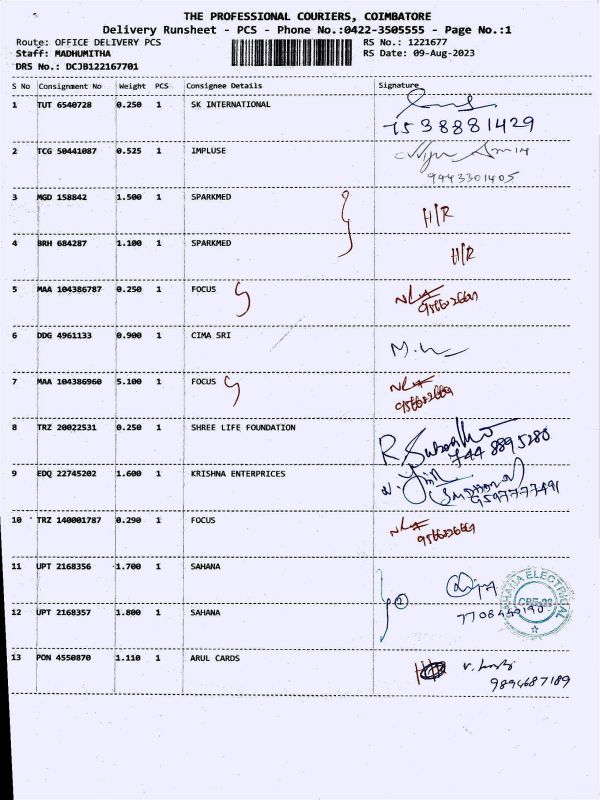 THE PROFESSIONAL COURIERS, COIMBATORE
Delivery Runsheet - PCS - Phone No.:0422-3505555 - Page No.:1
Route: OFFICE DELIVERY PCS RS No.: 1221677
Staff: MADHUMITHA RS Date: 09-Aug-2023
DRS No.: DCJB122167701
S No Consignment No Weight PCS Consignee Details Signature
1 TUT 6540728 0.250 1 SK INTERNATIONAL
7538881429
2 TCG 50441087 0.525 1 IMPLUSE
9443301405
3 MGD 158842 1.500 1 SPARKMED H/R
4 BRH 684287 1.100 1 SPARKMED H/R
5 MAA 104386787 0.250 1 FOCUS
6 DDG 4961133 0.900 1 CIMA SRI
7 MAA 104386960 5.100 1 FOCUS
8 TRZ 20022531 0.250 1 SHREE LIFE FOUNDATION
744 8895280
9 EDQ 22745202 1.600 1 KRISHNA ENTERPRICES
9597777491
10 TRZ 140001787 0.290 1 FOCUS
11 UPT 2168356 1.700 1 SAHANA
2
12 UPT 2168357 1.800 1 SAHANA
13 PON 4550870 1.110 1 ARUL CARDS
9894687189